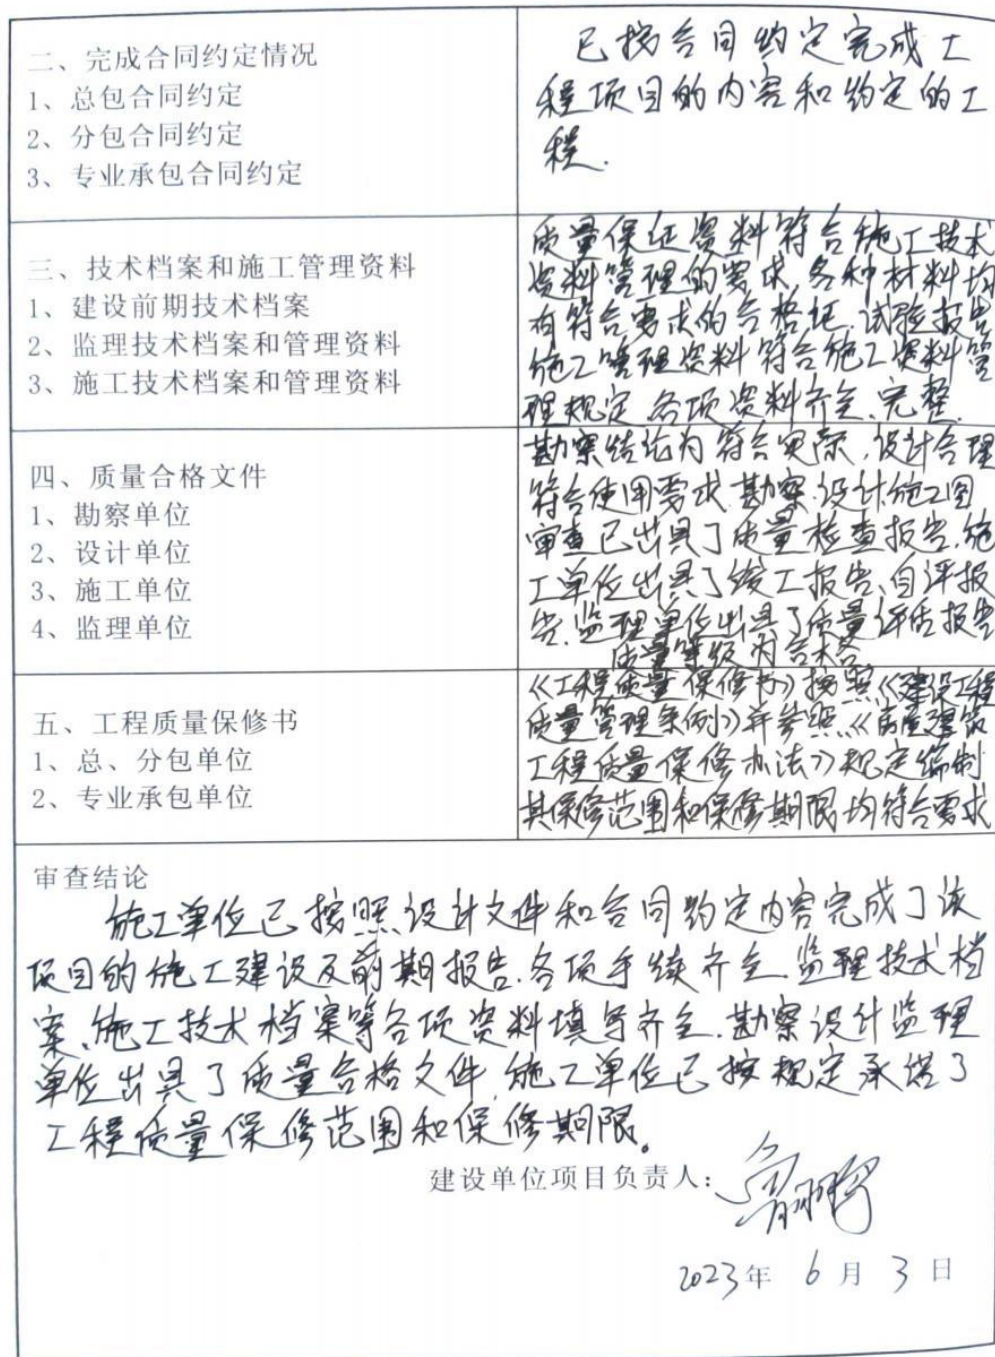 二、完成合同约定情况
1、总包合同约定
2、分包合同约定
3、专业承包合同约定
已按合同约定完成工
程项目的内容和约定的工
程.
三、技术档案和施工管理资料
1、建设前期技术档案
2、监理技术档案和管理资料
3、施工技术档案和管理资料
质量保证资料符合施工技术
资料管理的要求,各种材料均
有符合要求的合格证.试验报告
施工管理资料符合施工资料管
理规定.各项资料齐全、完整.
四、质量合格文件
1、勘察单位
2、设计单位
3、施工单位
4、监理单位
勘察结论为符合实际,设计合理
符合使用要求.勘察.设计.施工图
审查已出具了质量检查报告.施
工单位出具了竣工报告、自评报
告.监理单位出具了质量评估报告
质量等级为合格
五、工程质量保修书
1、总、分包单位
2、专业承包单位
《工程质量保修书》按照《建设工程
质量管理条例》并参照《房屋建筑
工程质量保修办法》规定编制
其保修范围和保修期限均符合要求
审查结论
施工单位已按照设计文件和合同约定内容完成了该
项目的施工建设及前期报告.各项手续齐全.监理技术档
案、施工技术档案等各项资料填写齐全.勘察设计监理
单位出具了质量合格文件,施工单位已按规定承诺了
工程质量保修范围和保修期限。
建设单位项目负责人:
2023年 6月 3日